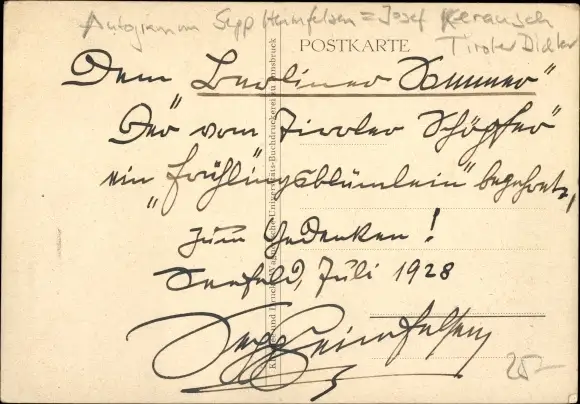 Autogramm Sepp Heimfelsen = Josef Kerausch
Tiroler Dichter
POSTKARTE
Dem „Berliner Sommer"
Der vom „Tiroler Schöpfer"
ein „Frühlingsblümlein" begehret,
zum Gedenken!
Seefeld, Juli 1928
Sepp Heimfelsen
und Druck: Wagner'sche Universitäts-Buchdruckerei zu Innsbruck
25-